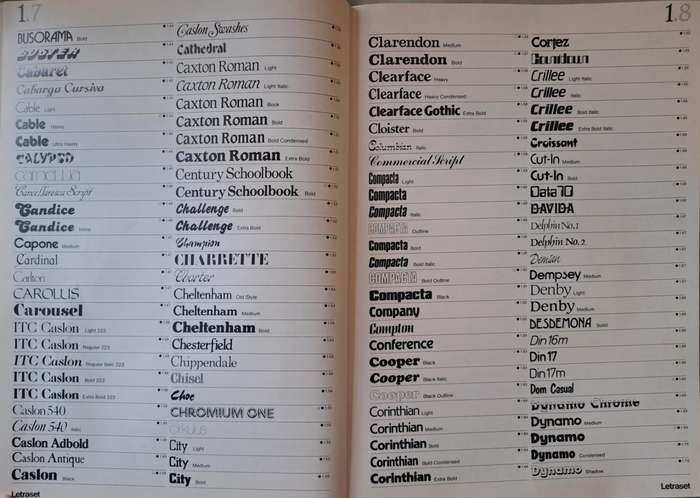 1.7
BUSORAMA Bold
Cabaret
Cabarga Cursiva
Cable Light
Cable Heavy
Cable Ultra Heavy
CALYPSO
Camellia
Cancellaresca Script
Candice
Candice Inline
Capone Medium
Cardinal
Carlton
CAROLUS
Carousel
ITC Caslon Light 223
ITC Caslon Regular 223
ITC Caslon Regular Italic 223
ITC Caslon Bold 223
ITC Caslon Extra Bold 223
Caslon 540
Caslon 540 Italic
Caslon Adbold
Caslon Antique
Caslon Black
Letraset
Caslon Swashes
Cathedral
Caxton Roman Light
Caxton Roman Light Italic
Caxton Roman Book
Caxton Roman Bold
Caxton Roman Bold Condensed
Caxton Roman Extra Bold
Century Schoolbook
Century Schoolbook Bold
Challenge Bold
Challenge Extra Bold
Champion
CHARRETTE
Charter
Cheltenham Old Style
Cheltenham Medium
Cheltenham Bold
Chesterfield
Chippendale
Chisel
Choc
CHROMIUM ONE
City Light
City Medium
City Bold
1.8
Clarendon Medium
Clarendon Bold
Clearface Heavy
Clearface Heavy Condensed
Clearface Gothic Extra Bold
Cloister Bold
Columbian Italic
Commercial Script
Compacta Light
Compacta
Compacta Italic
COMPACTA Outline
Compacta Bold
Compacta Bold Italic
COMPACTA Bold Outline
Compacta Black
Company
Compton
Conference
Cooper Black
Cooper Black Italic
Cooper Black Outline
Corinthian Light
Corinthian Medium
Corinthian Bold
Corinthian Bold Condensed
Corinthian Extra Bold
Cortez
Countdown
Crillee Light Italic
Crillee Italic
Crillee Bold Italic
Crillee Extra Bold Italic
Croissant
Cut-In Medium
Cut-In Bold
Data 70
DAVIDA
Delphin No.1
Delphin No. 2
Demian
Dempsey Medium
Denby Light
Denby Medium
DESDEMONA Solid
Din 16m
Din 17
Din 17m
Dom Casual
Dynamo Chrome
Dynamo Medium
Dynamo
Dynamo Condensed
Dynamo Shadow
Letraset